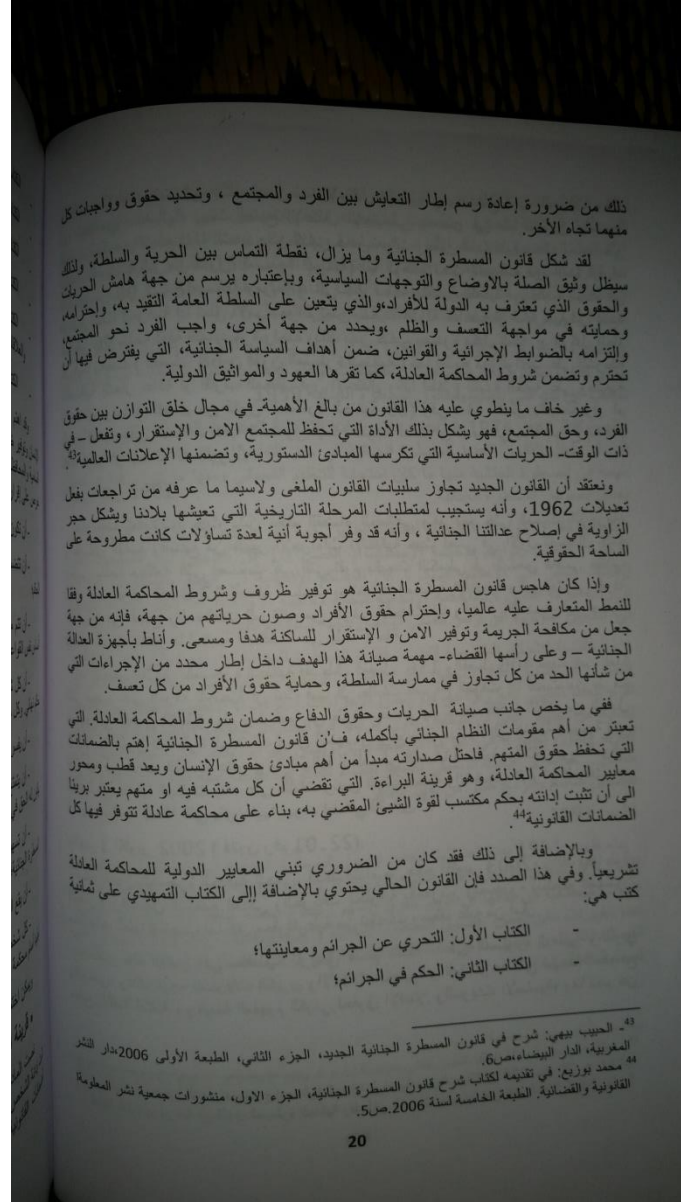 ذلك من ضرورة إعادة رسم إطار التعايش بين الفرد والمجتمع ، وتحديد حقوق وواجبات كل
منهما تجاه الأخر.
لقد شكل قانون المسطرة الجنائية وما يزال، نقطة التماس بين الحرية والسلطة، ولذلك
سيظل وثيق الصلة بالاوضاع والتوجهات السياسية، وبإعتباره يرسم من جهة هامش الحريات
والحقوق الذي تعترف به الدولة للأفراد،والذي يتعين على السلطة العامة التقيد به، وإحترامه،
وحمايته في مواجهة التعسف والظلم ،ويحدد من جهة أخرى، واجب الفرد نحو المجتمع،
وإلتزامه بالضوابط الإجرائية والقوانين، ضمن أهداف السياسة الجنائية، التي يفترض فيها أن
تحترم وتضمن شروط المحاكمة العادلة، كما تقرها العهود والمواثيق الدولية.
وغير خاف ما ينطوي عليه هذا القانون من بالغ الأهمية- في مجال خلق التوازن بين حقوق
الفرد، وحق المجتمع، فهو يشكل بذلك الأداة التي تحفظ للمجتمع الامن والإستقرار، وتفعل – في
ذات الوقت- الحريات الأساسية التي تكرسها المبادئ الدستورية، وتضمنها الإعلانات العالمية43.
ونعتقد أن القانون الجديد تجاوز سلبيات القانون الملغى ولاسيما ما عرفه من تراجعات بفعل
تعديلات 1962، وأنه يستجيب لمتطلبات المرحلة التاريخية التي تعيشها بلادنا ويشكل حجر
الزاوية في إصلاح عدالتنا الجنائية ، وأنه قد وفر أجوبة أنية لعدة تساؤلات كانت مطروحة على
الساحة الحقوقية.
وإذا كان هاجس قانون المسطرة الجنائية هو توفير ظروف وشروط المحاكمة العادلة وفقا
للنمط المتعارف عليه عالميا، وإحترام حقوق الأفراد وصون حرياتهم من جهة، فإنه من جهة
جعل من مكافحة الجريمة وتوفير الامن و الإستقرار للساكنة هدفا ومسعى. وأناط بأجهزة العدالة
الجنائية – وعلى رأسها القضاء- مهمة صيانة هذا الهدف داخل إطار محدد من الإجراءات التي
من شأنها الحد من كل تجاوز في ممارسة السلطة، وحماية حقوق الأفراد من كل تعسف.
ففي ما يخص جانب صيانة الحريات وحقوق الدفاع وضمان شروط المحاكمة العادلة. التي
تعبتر من أهم مقومات النظام الجنائي بأكمله، ف'ن قانون المسطرة الجنائية إهتم بالضمانات
التي تحفظ حقوق المتهم. فاحتل صدارته مبدأ من أهم مبادئ حقوق الإنسان ويعد قطب ومحور
معايير المحاكمة العادلة، وهو قرينة البراءة. التي تقضي أن كل مشتبه فيه او متهم يعتبر بريئا
الى أن تثبت إدانته بحكم مكتسب لقوة الشيئ المقضي به، بناء على محاكمة عادلة تتوفر فيها كل
الضمانات القانونية44.
وبالإضافة إلى ذلك فقد كان من الضروري تبني المعايير الدولية للمحاكمة العادلة
تشريعياً. وفي هذا الصدد فإن القانون الحالي يحتوي بالإضافة إالى الكتاب التمهيدي على ثمانية
كتب هي:
- الكتاب الأول: التحري عن الجرائم ومعاينتها؛
- الكتاب الثاني: الحكم في الجرائم؛
43- الحبيب بيهي: شرح في قانون المسطرة الجنائية الجديد، الجزء الثاني، الطبعة الأولى 2006،دار النشر
المغربية، الدار البيضاء،ص6.
44 محمد بوزبع: في تقديمه لكتاب شرح قانون المسطرة الجنائية، الجزء الاول، منشورات جمعية نشر المعلومة
القانونية والقضائية. الطبعة الخامسة لسنة 2006.ص5.
20